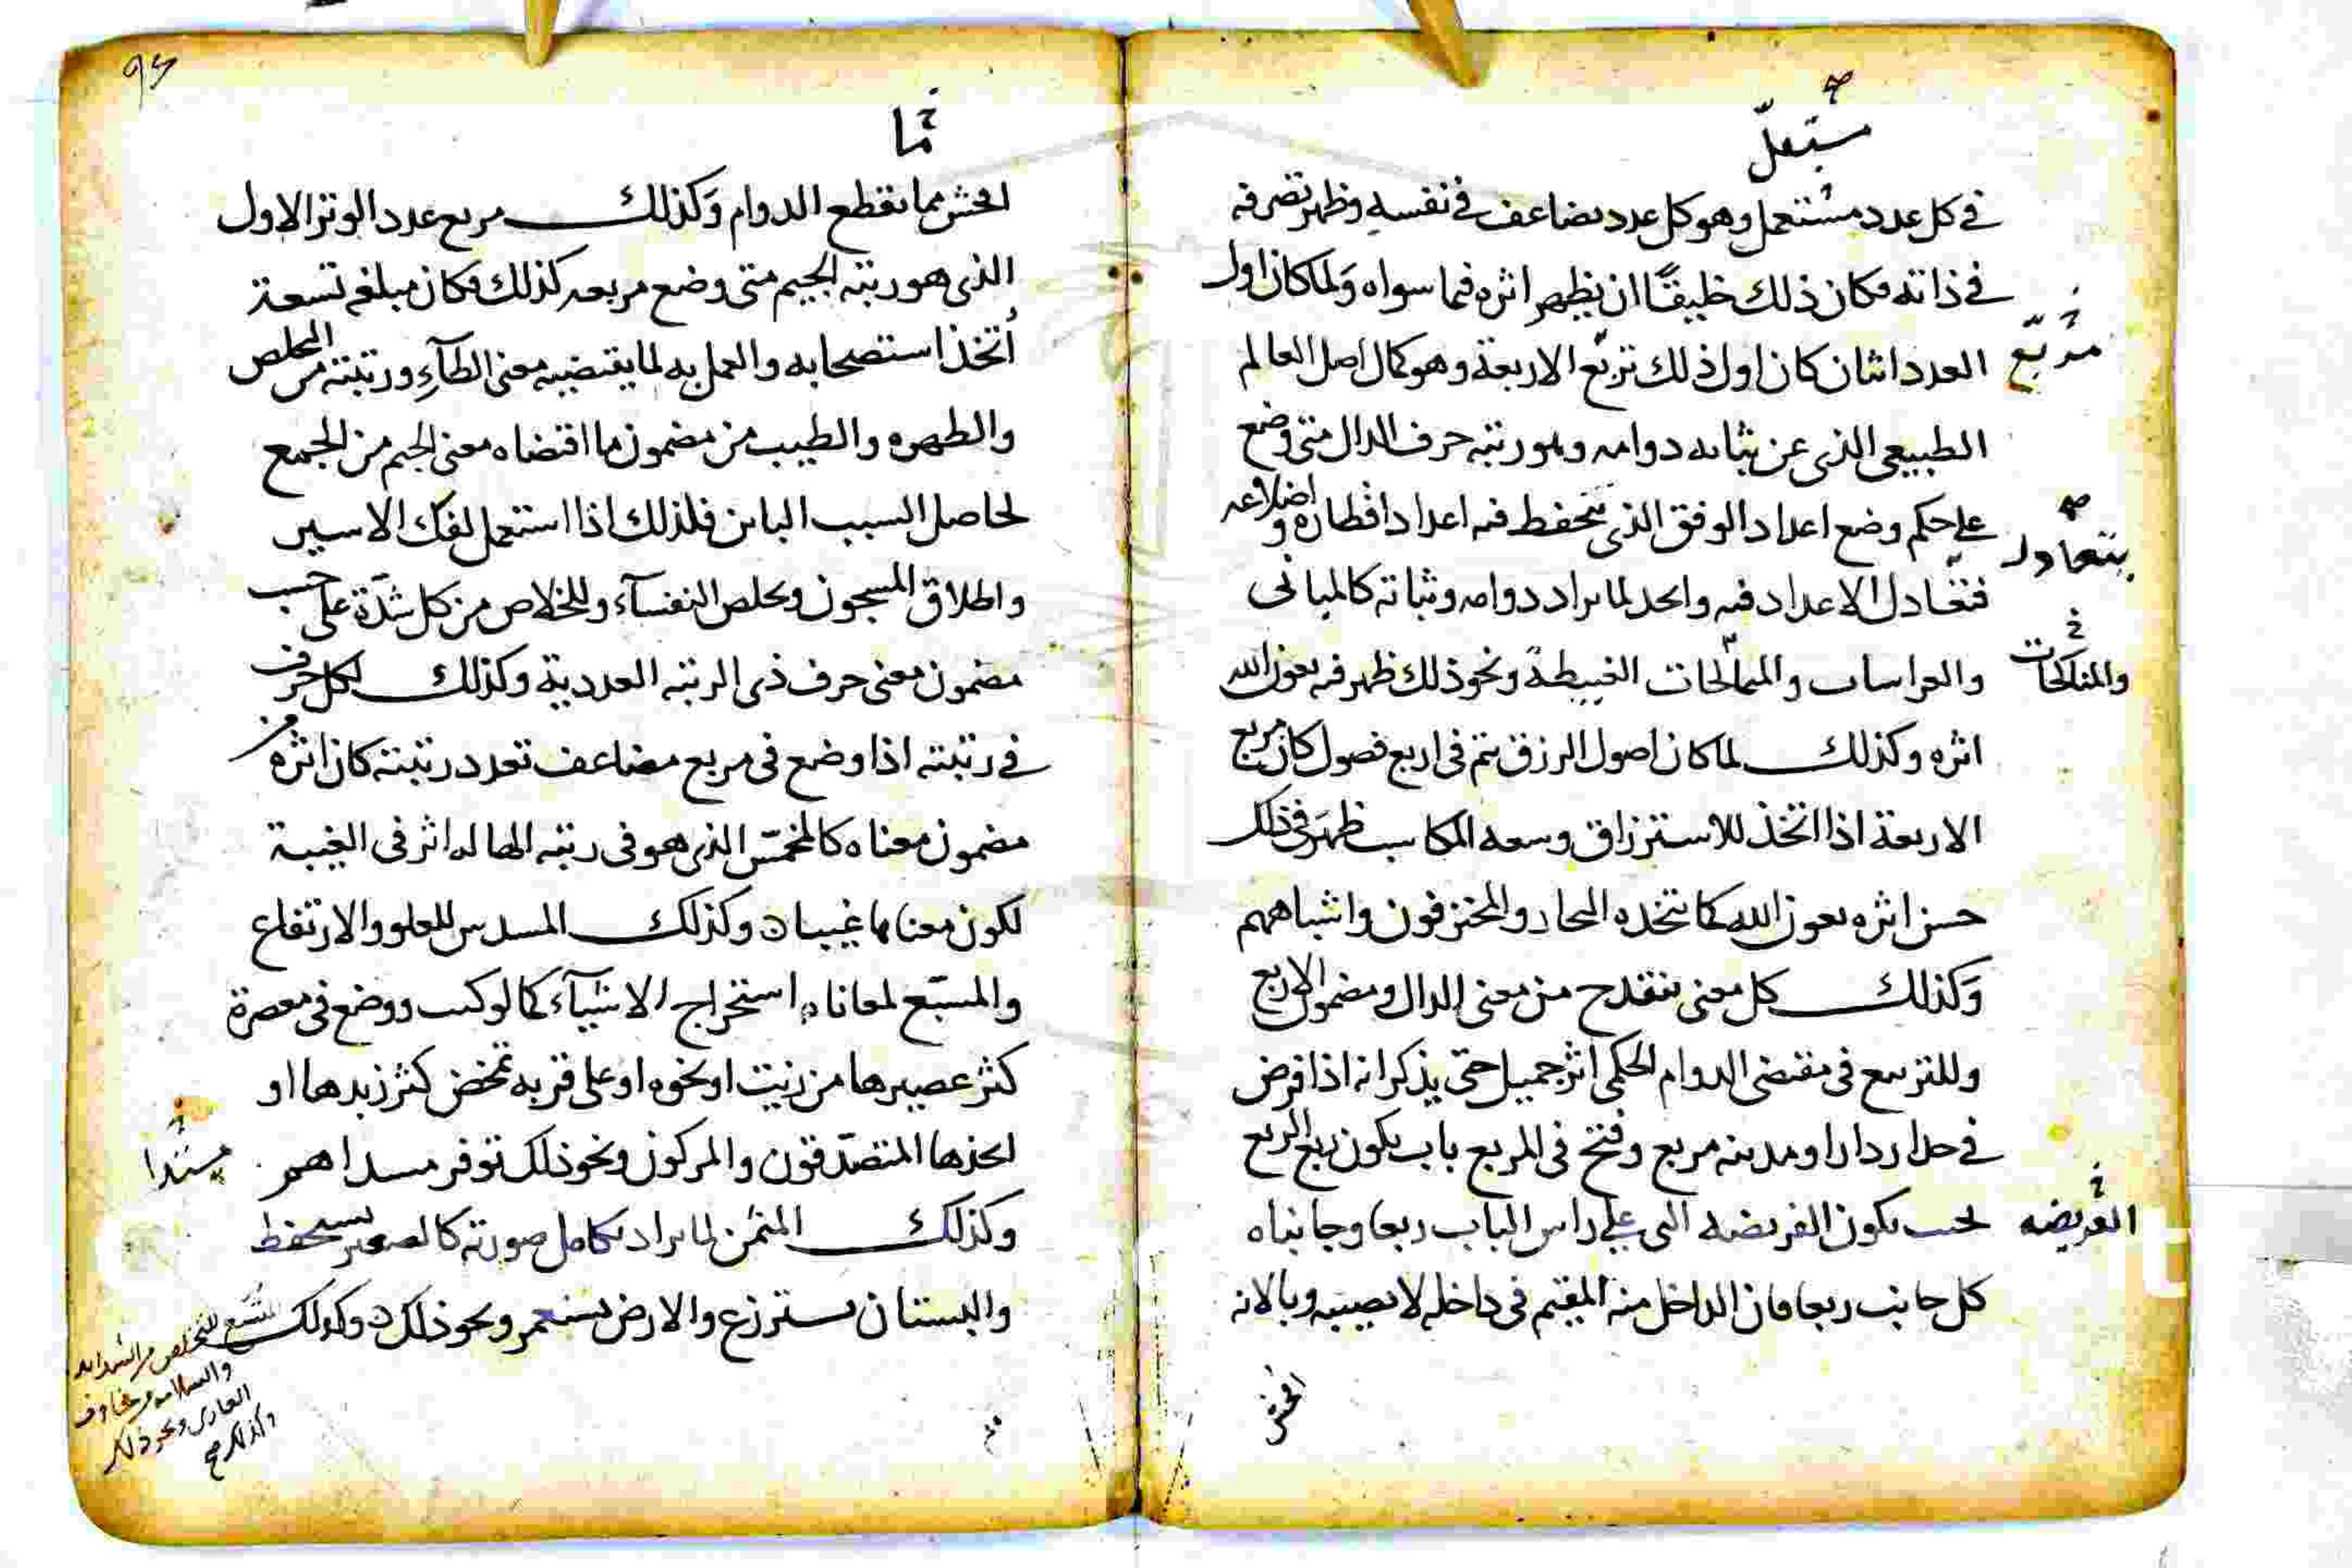 مستعمل
في كل عدد مشتعل وهو كل عدد يضاعف في نفسه وظهر تصرفه
في ذاته فكان ذلك خليقًا ان يظهر اثره فيما سواه وَلما كان اول
مربّع
العدد اثنان كان اول ذلك تربّع الاربعة وهو كمال اصل العالم
الطبيعي الذى عن بثاته دوامه وهو رتبة حرف الدال متى وضع
على حكم وضع اعداد الوفق الذى يتحفظ فيه اعداد اقطاره و اضلاعه
يتعادل
فتعادل الاعداد فيه واتحد لما يراد دوامه وثباته كالمبانى
والمناكحات
والغراسات والممالحات الغبيطة ونحو ذلك ظهر فيه بعون الله
اثره وكذلك لما كان اصول الرزق يتم فى اربع فصول كان مربع
الاربعة اذا اتخذ للاسترزاق وسعه المكاسب ظهَر في ذلك
حسن اثره بعون الله كما يتخذه التجار والمحترفون واشباههم
وَكذلك كل معنى ينقدح من معنى الدال ومضمون الاربع
وللتربيع فى مقتضى الدوام الحكمى اثر جميل حتى يذكر انه اذا فرض
في جدار دار او مدينه مربع وفتح فى المربع باب يكون ربع المربع
العريضه
بحيث يكون الفريضه التى على راس الباب ربعا وجانباه
كل جانب ربعا فان الداخل منه المقيم فى داخله لا يصيبه وبا لانه
افحش
٩٤
مما
افحش مما يقطع الدوام وَكذلك مربع عدد الوتر الاول
الذى هو رتبة الجيم متى وضع مربعه كذلك فكان مبلغه تسعة
اُتخذ استصحابه والعمل به لما يقتضيه معنى الطآءِ ورتبته من التخلص
والطهره والطيب من مضمون ما اقتضاه معنى الجيم من الجمع
لحاصل السبب الباين فلذلك اذا استعمل لفك الاسير
واطلاق المسجون وتخلص النفسآء وللخلاص من كل شدّة على حسب
مضمون معنى حرف ذى الرتبة العددية وكذلك لكل حرف
في رتبته اذا وضع فى مربع مضاعف تعدد رتبته كان اثره من
مضمون معناه كالمخمّس الذى هو فى رتبة الها له اثر فى الغيبة
لكون معناها غيبا وكذلك المسدس للعلو والارتفاع
والمسبّع لمعاناه استخراج الاشيآء كما لو كتب ووضع فى معصرة
كثر عصيرها من زيت او نحوه او على قربه تمخض كثر زبدها او
اتخذها المتصدّقون والمركون ونحو ذلك توفر
وكذلك المثمّن لما يراد تكامل صورته كالصغير يستحفظ
والبستان يستزرع والارض يستعمر ونحو ذلك وكذلك
المتسع للتخلص من الشدايد
والسلامه من مخاوف
ونحو ذلك
وكذلك صح